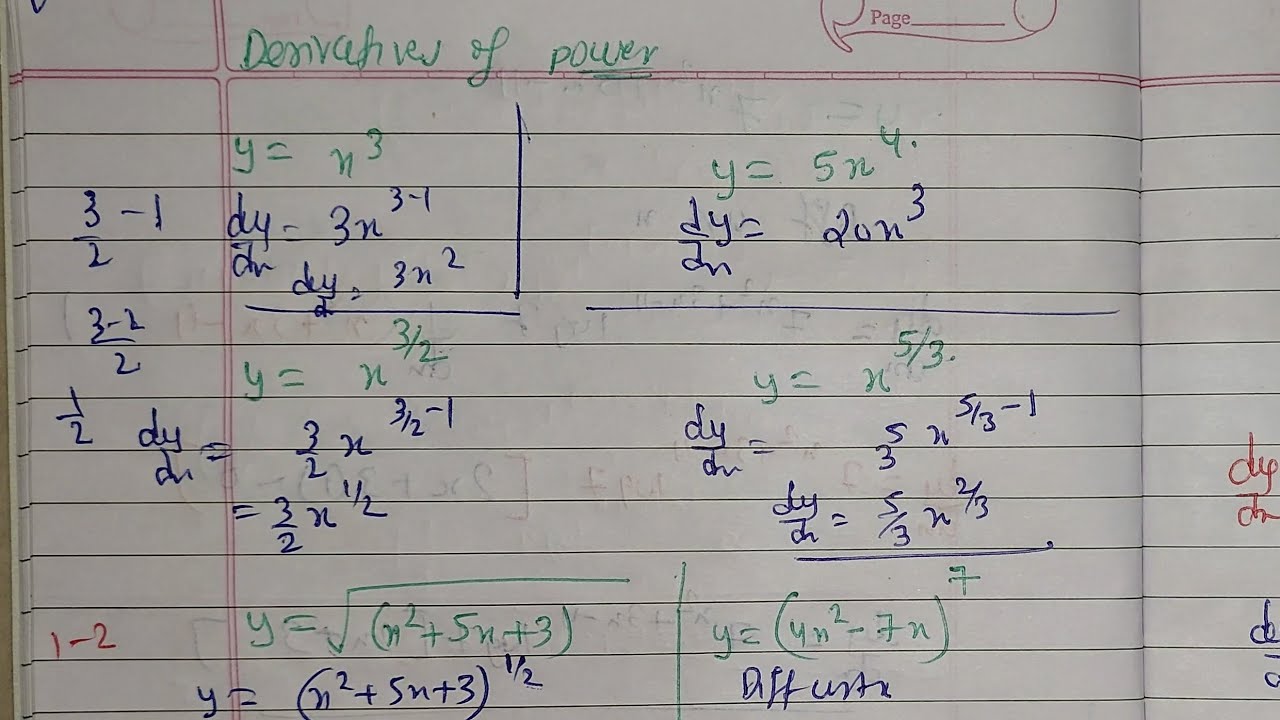 Page
Derivatives of power
y = x^3
3/2 - 1
dy/dx = 3x^(3-1)
dy/d = 3x^2
y = 5x^4.
dy/dx = 20x^3
(3-2)/2
1/2
y = x^(3/2)
dy/dx = 3/2 x^(3/2-1)
= 3/2 x^(1/2)
y = x^(5/3).
dy/dx = 5/3 x^(5/3-1)
dy/dx = 5/3 x^(2/3)
1-2
y = √(x^2+5x+3)
y = (x^2+5x+3)^(1/2)
y = (4x^2-7x)^7
Diff w.r.to x
dy/dx